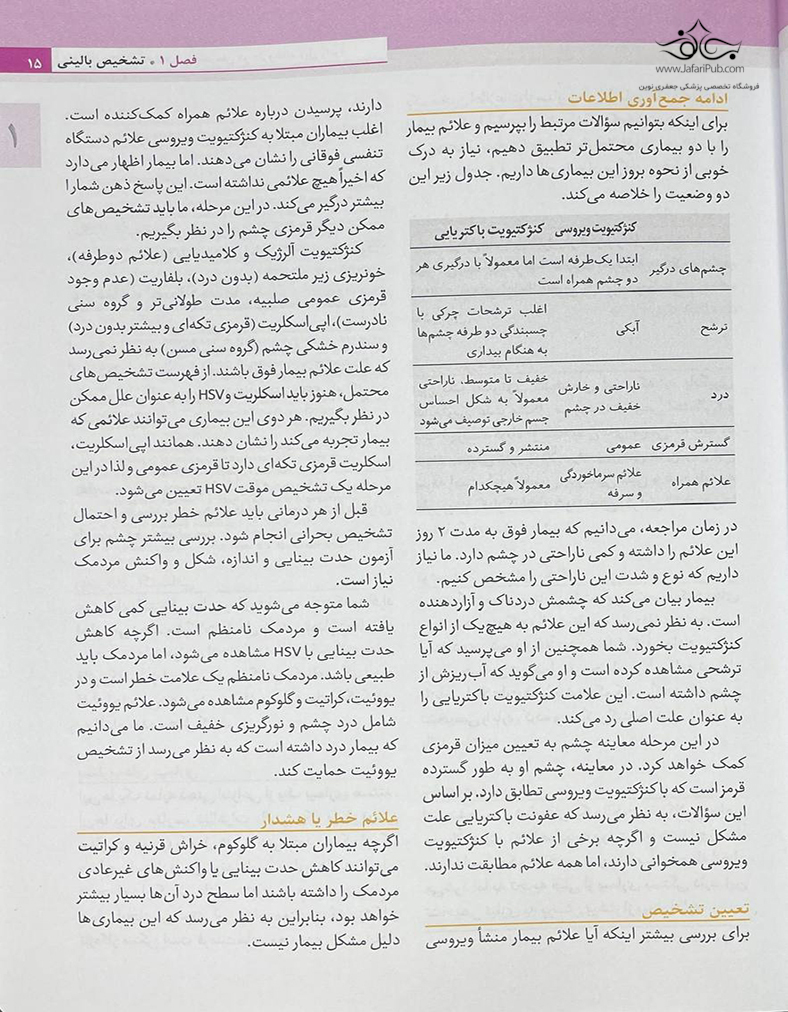 فصل ۱ • تشخیص بالینی ۱۵
جعفری
www.JafariPub.com
فروشگاه تخصصی پزشکی جعفری نوین
ادامه جمع‌آوری اطلاعات
برای اینکه بتوانیم سؤالات مرتبط را بپرسیم و علائم بیمار
را با دو بیماری محتمل‌تر تطبیق دهیم، نیاز به درک
خوبی از نحوه بروز این بیماری‌ها داریم. جدول زیر این
دو وضعیت را خلاصه می‌کند.
کنژکتیویت ویروسی کنژکتیویت باکتریایی
چشم‌های درگیر ابتدا یک‌طرفه است اما معمولاً با درگیری هر
دو چشم همراه است
ترشح آبکی اغلب ترشحات چرکی با
چسبندگی دو طرفه چشم‌ها
به هنگام بیداری
درد ناراحتی و خارش
خفیف در چشم
خفیف تا متوسط، ناراحتی
معمولاً به شکل احساس
جسم خارجی توصیف می‌شود
گسترش قرمزی عمومی منتشر و گسترده
علائم همراه علائم سرماخوردگی
و سرفه
معمولاً هیچکدام
در زمان مراجعه، می‌دانیم که بیمار فوق به مدت ۲ روز
این علائم را داشته و کمی ناراحتی در چشم دارد. ما نیاز
داریم که نوع و شدت این ناراحتی را مشخص کنیم.
بیمار بیان می‌کند که چشمش دردناک و آزاردهنده
است. به نظر نمی‌رسد که این علائم به هیچ‌یک از انواع
کنژکتیویت بخورد. شما همچنین از او می‌پرسید که آیا
ترشحی مشاهده کرده است و او می‌گوید که آب‌ریزش از
چشم داشته است. این علامت کنژکتیویت باکتریایی را
به عنوان علت اصلی رد می‌کند.
در این مرحله معاینه چشم به تعیین میزان قرمزی
کمک خواهد کرد. در معاینه، چشم او به طور گسترده
قرمز است که با کنژکتیویت ویروسی تطابق دارد. بر اساس
این سؤالات، به نظر می‌رسد که عفونت باکتریایی علت
مشکل نیست و اگرچه برخی از علائم با کنژکتیویت
ویروسی همخوانی دارند، اما همه علائم مطابقت ندارند.
تعیین تشخیص
برای بررسی بیشتر اینکه آیا علائم بیمار منشأ ویروسی
دارند، پرسیدن درباره علائم همراه کمک‌کننده است.
اغلب بیماران مبتلا به کنژکتیویت ویروسی علائم دستگاه
تنفسی فوقانی را نشان می‌دهند. اما بیمار اظهار می‌دارد
که اخیراً هیچ علائمی نداشته است. این پاسخ ذهن شما را
بیشتر درگیر می‌کند. در این مرحله، ما باید تشخیص‌های
ممکن دیگر قرمزی چشم را در نظر بگیریم.
کنژکتیویت آلرژیک و کلامیدیایی (علائم دوطرفه)،
خونریزی زیر ملتحمه (بدون درد)، بلفاریت (عدم وجود
قرمزی عمومی صلبیه، مدت طولانی‌تر و گروه سنی
نادرست)، اپی‌اسکلریت (قرمزی تکه‌ای و بیشتر بدون درد)
و سندرم خشکی چشم (گروه سنی مسن) به نظر نمی‌رسد
که علت علائم بیمار فوق باشند. از فهرست تشخیص‌های
محتمل، هنوز باید اسکلریت و HSV را به عنوان علل ممکن
در نظر بگیریم. هر دوی این بیماری می‌توانند علائمی که
بیمار تجربه می‌کند را نشان دهند. همانند اپی‌اسکلریت،
اسکلریت قرمزی تکه‌ای دارد تا قرمزی عمومی و لذا در این
مرحله یک تشخیص موقت HSV تعیین می‌شود.
قبل از هر درمانی باید علائم خطر بررسی و احتمال
تشخیص بحرانی انجام شود. بررسی بیشتر چشم برای
آزمون حدت بینایی و اندازه، شکل و واکنش مردمک
نیاز است.
شما متوجه می‌شوید که حدت بینایی کمی کاهش
یافته است و مردمک نامنظم است. اگرچه کاهش
حدت بینایی با HSV مشاهده می‌شود، اما مردمک باید
طبیعی باشد. مردمک نامنظم یک علامت خطر است و در
یووئیت، کراتیت و گلوکوم مشاهده می‌شود. علائم یووئیت
شامل درد چشم و نورگریزی خفیف است. ما می‌دانیم
که بیمار درد داشته است که به نظر می‌رسد از تشخیص
یووئیت حمایت کند.
علائم خطر یا هشدار
اگرچه بیماران مبتلا به گلوکوم، خراش قرنیه و کراتیت
می‌توانند کاهش حدت بینایی یا واکنش‌های غیرعادی
مردمک را داشته باشند اما سطح درد آن‌ها بسیار بیشتر
خواهد بود، بنابراین به نظر می‌رسد که این بیماری‌ها
دلیل مشکل بیمار نیست.
۱